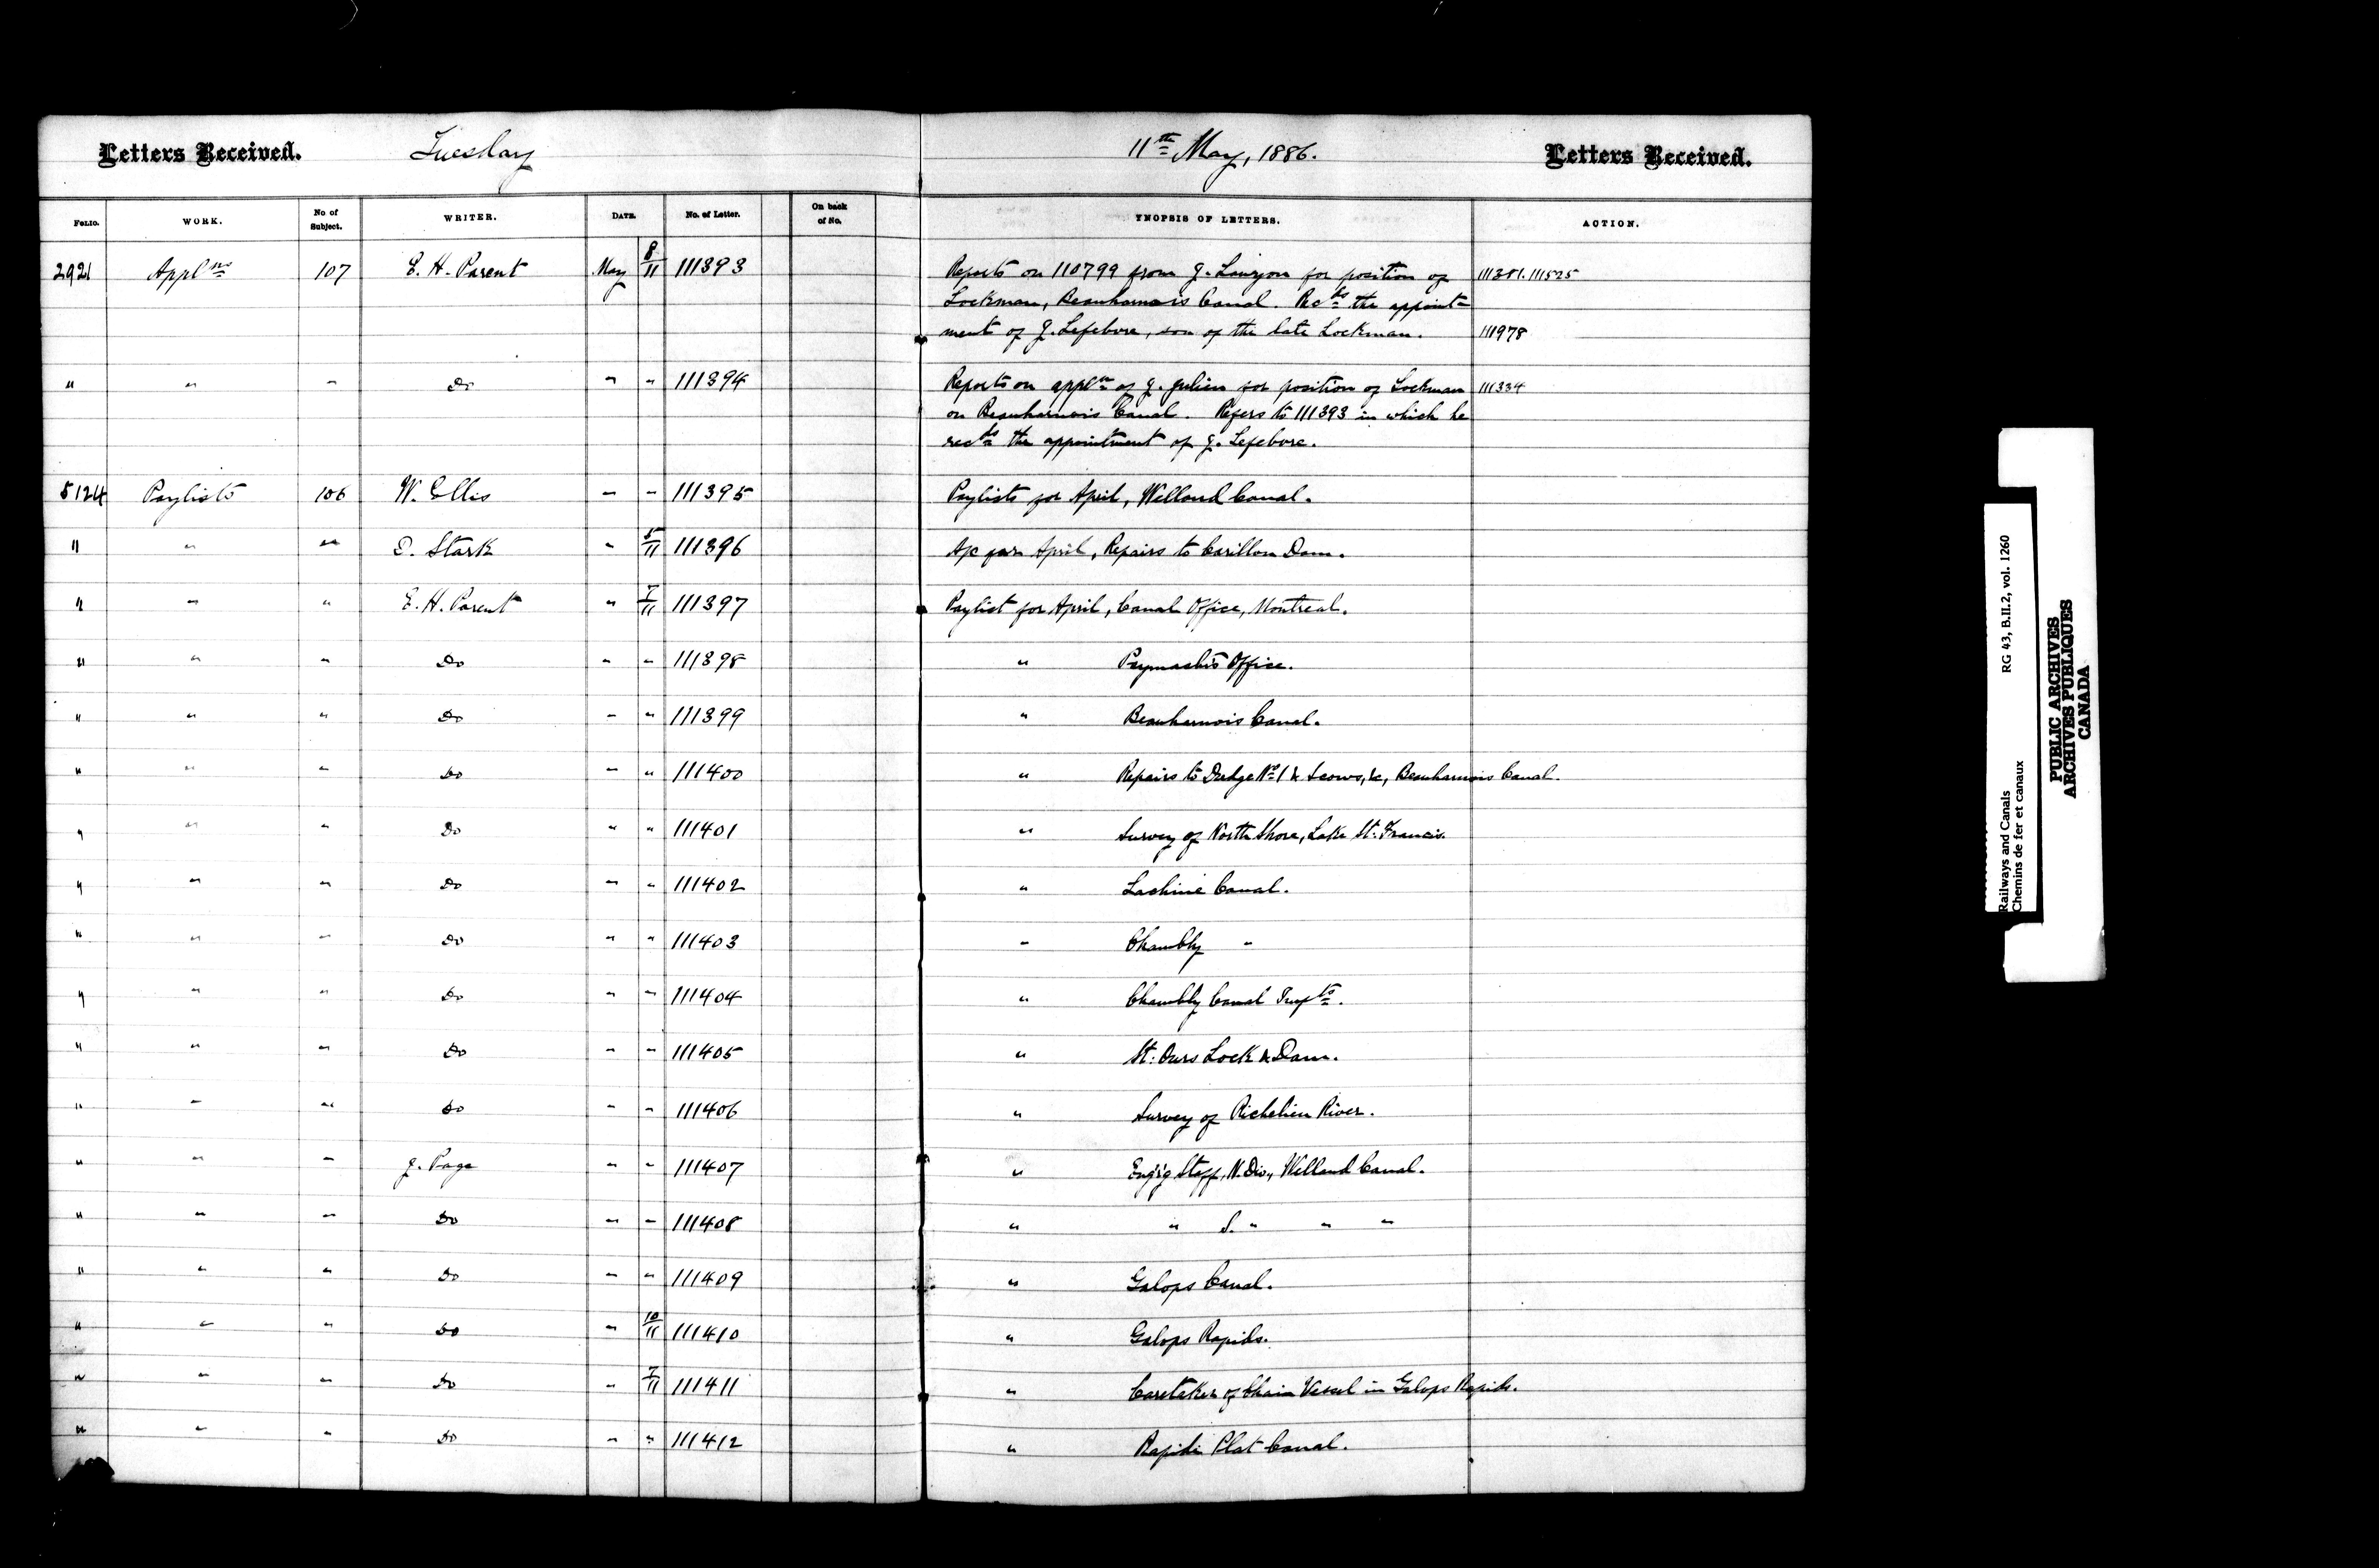 Letters Received. Tuesday 11th May, 1886. Letters Received.
FOLIO. WORK. No of Subject. WRITER. DATE. No. of Letter. On back of No. YNOPSIS OF LETTERS. ACTION.
2921 Applns 107 E. H. Parent May 8/11 111393 Reports on 110799 from J. for position of 111525
Lockman, Beauharnois Canal. Recds the appoint-
ment of J. Lefebvre, son of the late Lockman. 111978
" " " Do " " 111394 Reports on appln of J. Julien for position of Lockman 111334
on Beauharnois Canal. Refers to 111393 in which he
recds the appointment of J. Lefebvre.
5124 Paylists 106 W. Ellis " " 111395 Paylists for April, Welland Canal.
" " " D. Stark " 5/11 111396 A/c for April, Repairs to Carillon Dam.
" " " E. H. Parent " 7/11 111397 Paylist for April, Canal Office, Montreal.
" " " Do " " 111398 " Paymaster's Office.
" " " Do " " 111399 " Beauharnois Canal.
" " " Do " " 111400 " Repairs to Dredge No 1 & Scows, &c, Beauharnois Canal.
" " " Do " " 111401 " Survey of North Shore, Lake St. Francis.
" " " Do " " 111402 " Lachine Canal.
" " " Do " " 111403 " Chambly "
" " " Do " " 111404 " Chambly Canal Impts.
" " " Do " " 111405 " St. Ours Lock & Dam.
" " " Do " " 111406 " Survey of Richelieu River.
" " " J. Page " " 111407 " Eng'g Staff, N. Div., Welland Canal.
" " " Do " " 111408 " " S. " " "
" " " Do " " 111409 " Galops Canal.
" " " Do " 10/11 111410 " Galops Rapids.
" " " Do " 7/11 111411 " Caretaker of Chain Vessel in Galops Rapids.
" " " Do " " 111412 " Rapide Plat Canal.
Railways and Canals RG 43, B.II.2, vol. 1260
Chemins de fer et canaux
PUBLIC ARCHIVES
ARCHIVES PUBLIQUES
CANADA